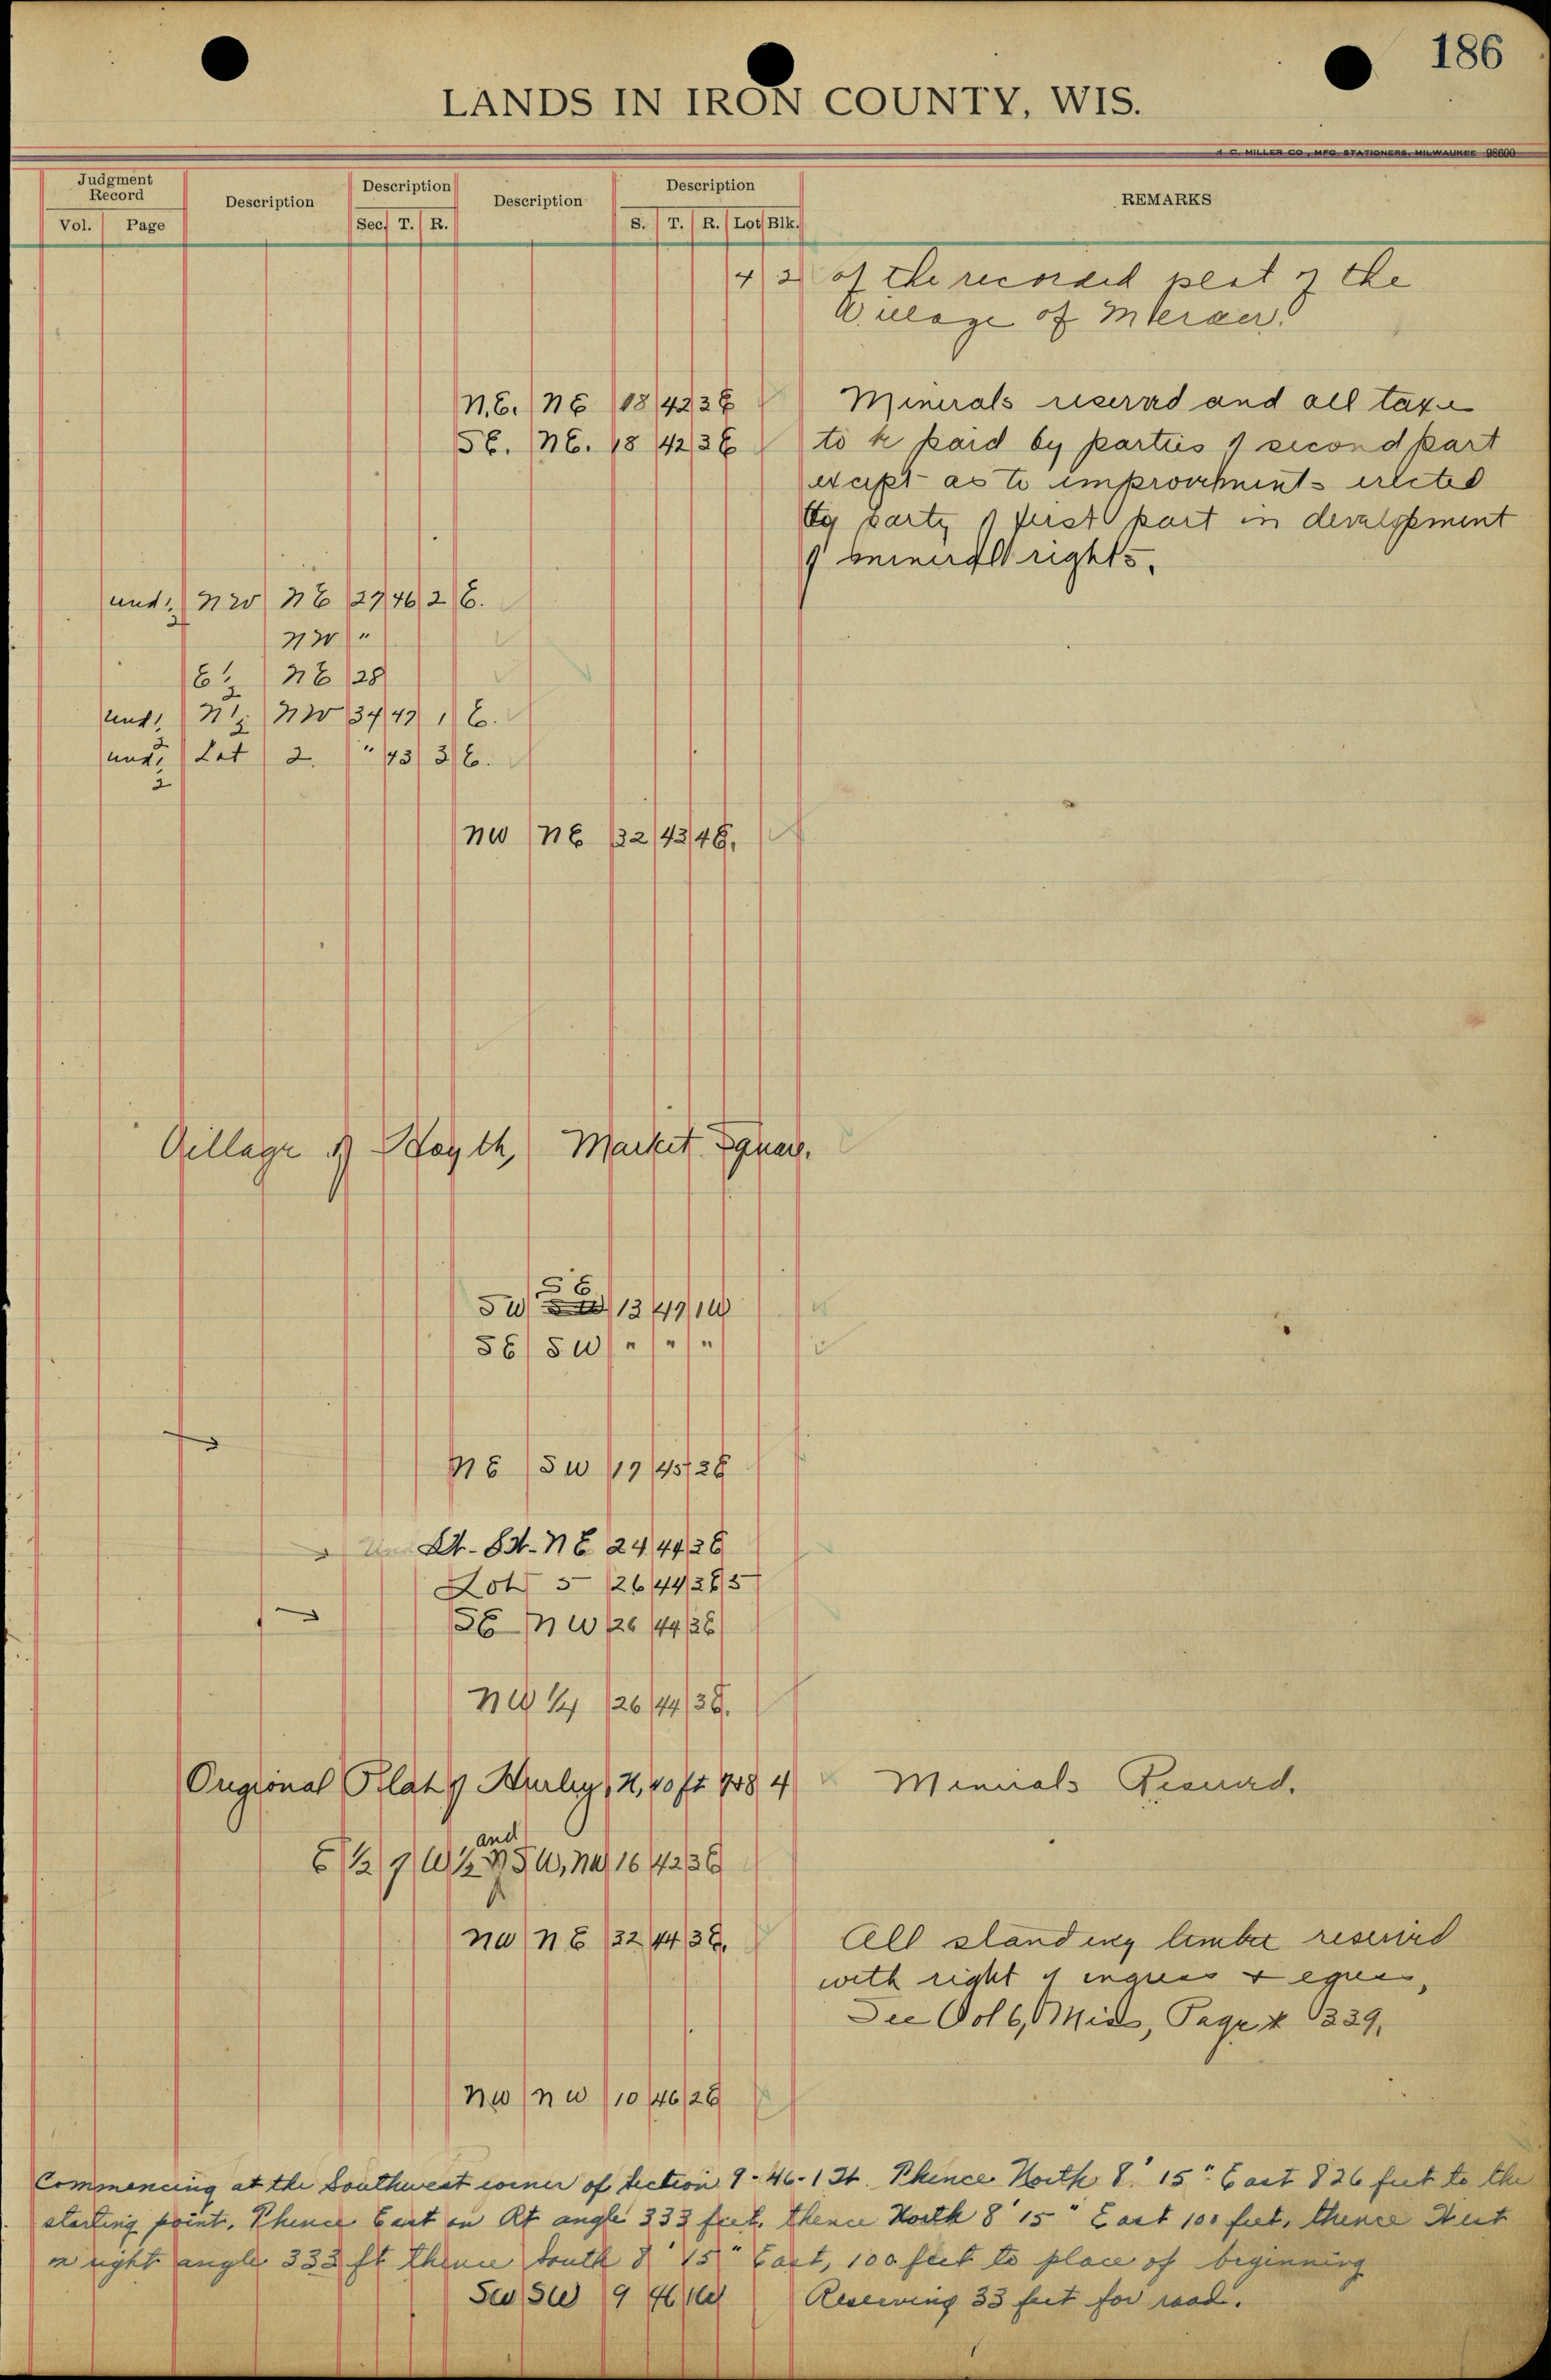 186
LANDS IN IRON COUNTY, WIS.
H. C. MILLER CO., MFG. STATIONERS, MILWAUKEE 98600
Judgment Record Description Description Description Description REMARKS
Vol. Page Sec. T. R. S. T. R. Lot Blk.
4 2 of the recorded plat of the
Village of Mercer.
N.E. NE 18 42 3E Minerals reserved and all taxes
SE. NE. 18 42 3E to be paid by parties of second part
except as to improvements erected
by party of first part in development
of mineral rights.
und 1/2 NW NE 27 46 2 E.
NW "
E 1/2 NE 28
und 1/2 N 1/2 NW 34 47 1 E.
und 1/2 Lot 2. " 43 3 E.
NW NE 32 43 4E.
Village of Hoyth, Market Square.
SE
SW SW 13 47 1W
SE SW " " "
NE SW 17 45 2E
Und Lt. 8 NE 24 44 3E
Lot 5 26 44 3E 5
SE NW 26 44 3E
NW 1/4 26 44 3E.
Origional Plat of Hurley, N, 40 ft 4 Minerals Reserved.
and
E 1/2 of W 1/2 of SW, NW 16 42 3E
NW NE 32 44 3E. All standing timber reserved
with right of ingress & egress,
See Vol 6, Miss, Page * 339,
NW NW 10 46 2E
Commencing at the Southwest corner of Section 9-46-1 W. Thence North 8' 15" East 826 feet to the
starting point. Thence East on Rt angle 333 feet, thence North 8' 15" East 100 feet, thence West
on right angle 333 ft thence South 8' 15" East, 100 feet to place of beginning
SW SW 9 46 1W Reserving 33 feet for road.